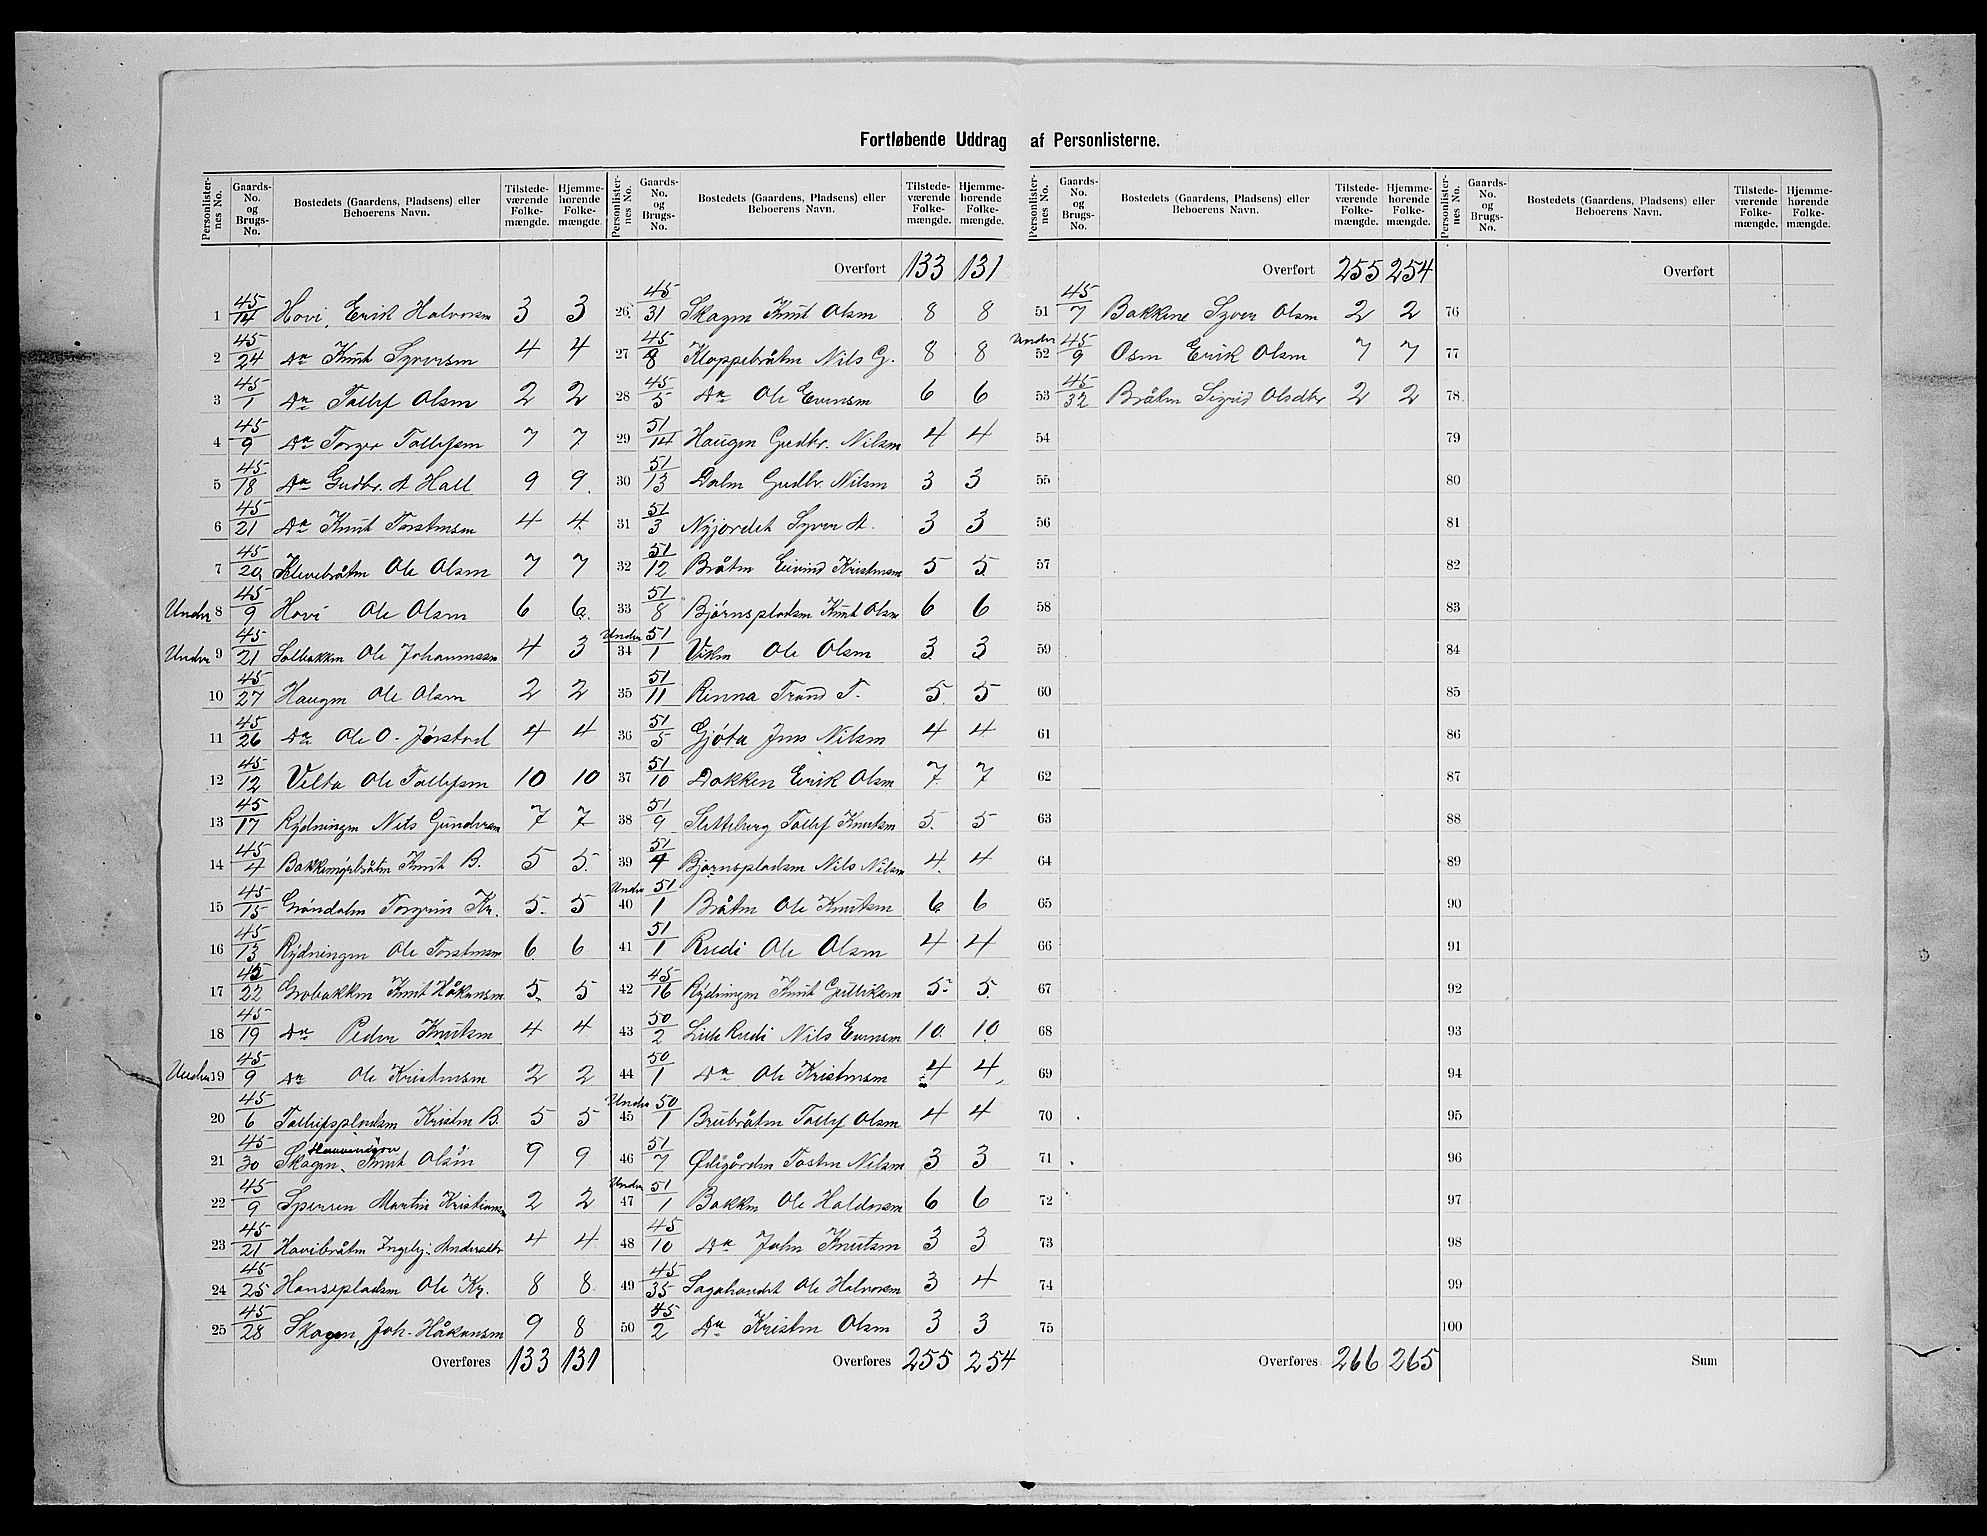 Fortløbende Uddrag af Personlisterne.
Personlisternes No. Gaards-No. og Brugs-No. Bostedets (Gaardens, Pladsens) eller Beboerens Navn. Tilstedeværende Folkemængde. Hjemmehørende Folkemængde.
Overført 133 131
Overført 255 254
Overført
1 45/14 Hovi, Erik Halvorsen 3 3
2 45/24 Do Knut Syversen 4 4
3 45/1 Do Tollef Olsen 2 2
4 45/9 Do Torger Tollefsen 7 7
5 45/18 Do Gudbr. A Hall 9 9
6 45/21 Do Knut Torstensen 4 4
7 45/20 Klevebråten Ole Olsen 7 7
Under 8 45/9 Hovi Ole Olsen 6 6
Under 9 45/21 Solbakken Ole Johannessen 4 3
10 45/27 Haugen Ole Olsen 2 2
11 45/26 Do Ole O. Jørstad 4 4
12 45/12 Velta Ole Tollefsen 10 10
13 45/17 Rydningen Nils Gundersen 7 7
14 45/4 Knut B. 5 5
15 45/15 Grøndalen Torgrim Kr. 5 5
16 45/13 Rydningen Ole Torstensen 6 6
17 45/22 Grobakken Knut Håkensen 5 5
18 45/19 Do Peder Knutsen 4 4
Under 19 45/9 Do Ole Kristensen 2 2
20 45/6 Tollefspladsen Kristen B. 5 5
21 45/30 Skagen, Knut Olsen 9 9
22 45/9 Sperren Martin Kristiansen 2 2
23 45/21 Hovibråten Ingebj. Andersdtr 4 4
24 45/25 Hansepladsen Ole Kr. 8 8
25 45/28 Skagen, Joh. Håkensen 9 8
Overføres 133 131
26 45/31 Skagen Knut Olsen 8 8
27 45/8 Kloppebråten Nils G. 8 8
28 45/5 Do Ole Evensen 6 6
29 51/14 Haugen Gudbr. Nilsen 4 4
30 51/13 Dalen Gudbr. Nilsen 3 3
31 51/3 Nyjordet Syver A. 3 3
32 51/12 Bråten Eivind Kristensen 5 5
33 51/8 Bjørnspladsen Knut Olsen 6 6
Under 34 51/1 Viken Ole Olsen 3 3
35 51/11 Rinna Trond T. 5 5
36 51/5 Gjøta Jens Nilsen 4 4
37 51/10 Dokken Erik Olsen 7 7
38 51/9 Sletteberg Tollef Knutsen 5 5
39 51/4 Bjørnspladsen Nils Nilsen 4 4
Under 40 51/1 Bråten Ole Knutsen 6 6
41 51/1 Rudi Ole Olsen 4 4
42 45/16 Rydningen Knut Gulliksen 5 5
43 50/2 Lille Rudi Nils Evensen 10 10
44 50/1 Do Ole Kristensen 4 4
Under 45 50/1 Brubråten Tollef Olsen 4 4
46 51/7 Ødegården Tosten Nilsen 3 3
Under 47 51/1 Bakken Ole Haldorsen 6 6
48 45/10 Do John Knutsen 3 3
49 45/35 Sagahaudet Ole Halvorsen 3 4
50 45/2 Do Kristen Olsen 3 3
Overføres 255 254
51 45/7 Bakkene Syver Olsen 2 2
Under 52 45/9 Osen Erik Olsen 7 7
53 45/32 Bråten Sigrid Olsdtr 2 2
54
55
56
57
58
59
60
61
62
63
64
65
66
67
68
69
70
71
72
73
74
75
Overføres 266 265
76
77
78
79
80
81
82
83
84
85
86
87
88
89
90
91
92
93
94
95
96
97
98
99
100
Sum